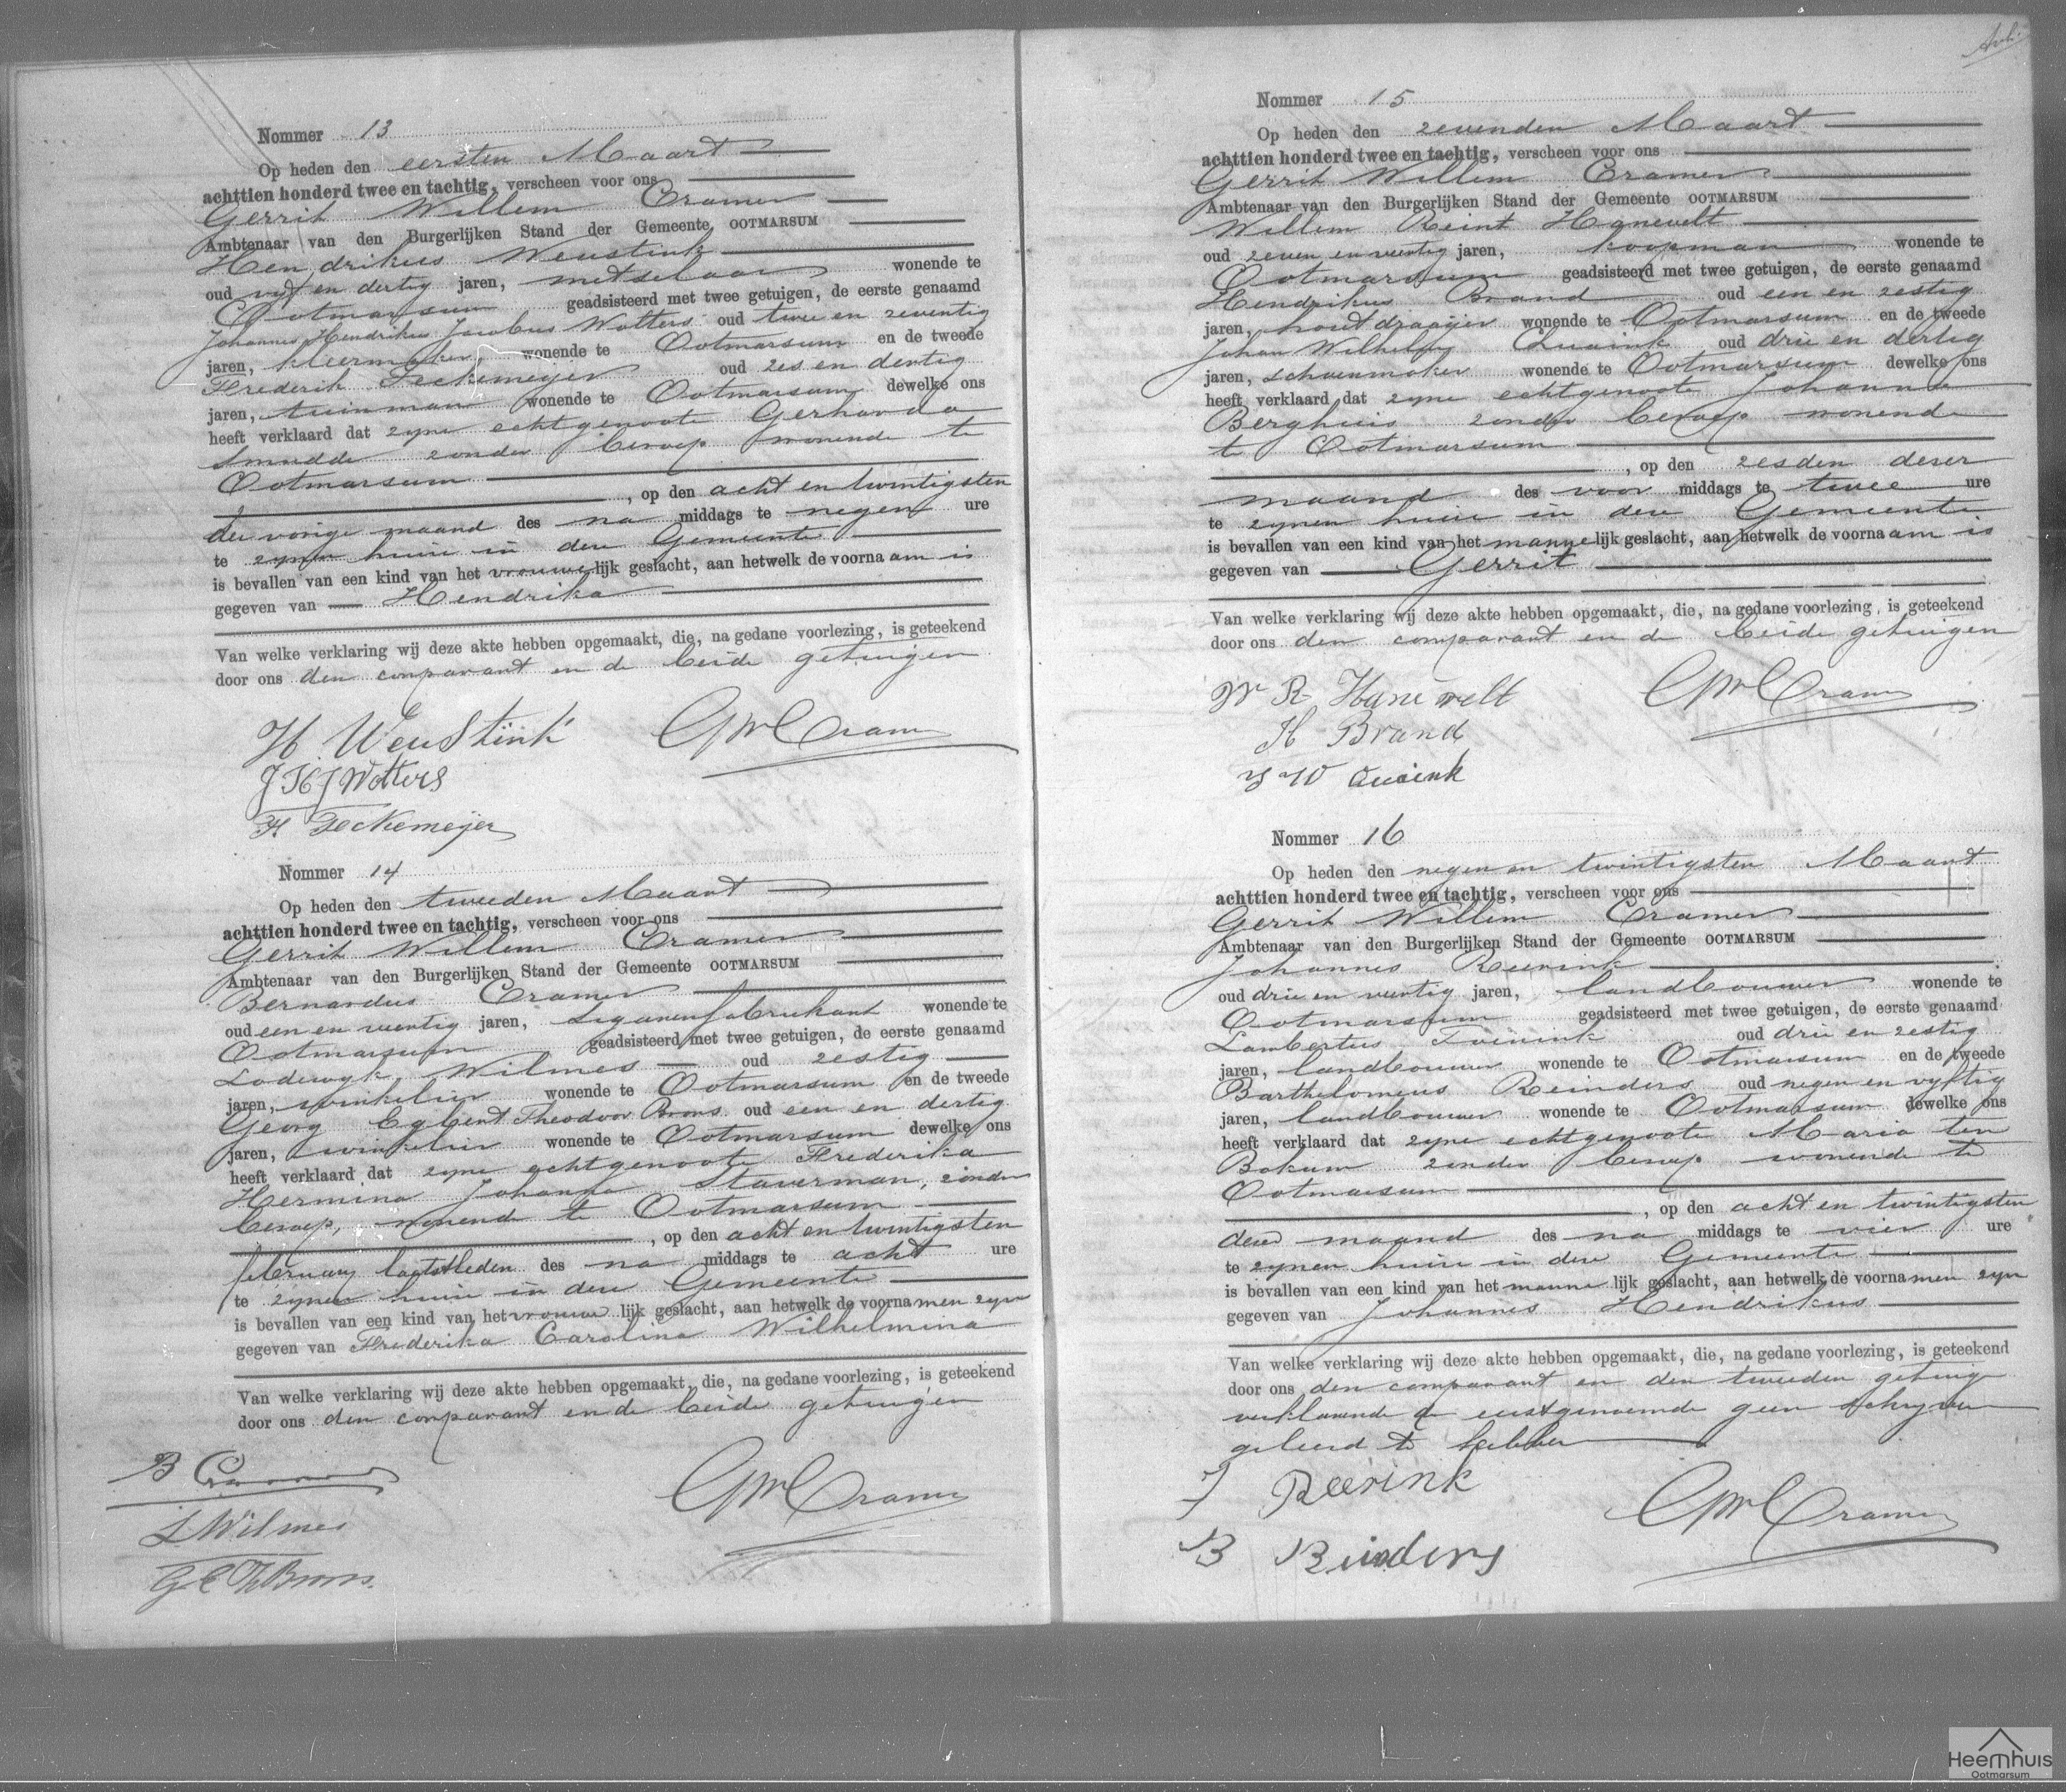 Nommer 13
Op heden den eersten Maart
achttien honderd twee en tachtig, verscheen voor ons
Gerrit Willem Cramer
Ambtenaar van den Burgerlijken Stand der Gemeente OOTMARSUM
Hendrikus Weustink
oud vijf en dertig jaren, metselaar wonende te
Ootmarsum geadsisteerd met twee getuigen, de eerste genaamd
Johannes Hendrikus Jacobus Wolters oud twee en zeventig
jaren, kleermaker wonende te Ootmarsum en de tweede
Frederik Feckemeijer oud zes en dertig
jaren, tuinman wonende te Ootmarsum dewelke ons
heeft verklaard dat zijne echtgenoote Gerharda
Smudde zonder beroep wonende te
Ootmarsum
, op den acht en twintigsten
der vorige maand des na middags te negen ure
te zijnen huize in deze Gemeente
is bevallen van een kind van het vrouwelijk geslacht, aan hetwelk de voornaam is
gegeven van Hendrika
Van welke verklaring wij deze akte hebben opgemaakt, die, na gedane voorlezing, is geteekend
door ons den comparant en de beide getuigen
H. Weustink GWCramer
J H J Wolters
F. Feckemeijer
Nommer 14
Op heden den tweeden Maart
achttien honderd twee en tachtig, verscheen voor ons
Gerrit Willem Cramer
Ambtenaar van den Burgerlijken Stand der Gemeente OOTMARSUM
Bernardus Cramer
oud een en veertig jaren, sigarenfabriekant wonende te
Ootmarsum geadsisteerd met twee getuigen, de eerste genaamd
Lodewijk Wilmes oud zestig
jaren, winkelier wonende te Ootmarsum en de tweede
Georg Egbert Theodoor Brons oud een en dertig
jaren, winkelier wonende te Ootmarsum dewelke ons
heeft verklaard dat zijne echtgenoote Frederika
Hermina Johanna Staverman, zonder
beroep, wonende te Ootmarsum
, op den acht en twintigsten
february laatstleden des na middags te acht ure
te zijnen huize in deze Gemeente
is bevallen van een kind van het vrouwelijk geslacht, aan hetwelk de voornamen zijn
gegeven van Frederika Carolina Wilhelmina
Van welke verklaring wij deze akte hebben opgemaakt, die, na gedane voorlezing, is geteekend
door ons den comparant en de beide getuigen
B Cramer GWCramer
L Wilmes
G E Th Brons.
Nommer 15
Op heden den zevenden Maart
achttien honderd twee en tachtig, verscheen voor ons
Gerrit Willem Cramer
Ambtenaar van den Burgerlijken Stand der Gemeente OOTMARSUM
Willem Reint Hanevelt
oud zeven en veertig jaren, koopman wonende te
Ootmarsum geadsisteerd met twee getuigen, de eerste genaamd
Hendrikus Brand oud een en zestig
jaren, houtdraaijer wonende te Ootmarsum en de tweede
Johan Wilhelm oud drie en dertig
jaren, schoenmaker wonende te Ootmarsum dewelke ons
heeft verklaard dat zijne echtgenoote Johanna
Berghuis zonder beroep wonende
te Ootmarsum
, op den zesden dezer
maand des voor middags te twee ure
te zijnen huize in deze Gemeente
is bevallen van een kind van het mannelijk geslacht, aan hetwelk de voornaam is
gegeven van Gerrit
Van welke verklaring wij deze akte hebben opgemaakt, die, na gedane voorlezing, is geteekend
door ons den comparant en de beide getuigen
W R Hanevelt GWCramer
H Brand
J W
Nommer 16
Op heden den negen en twintigsten Maart
achttien honderd twee en tachtig, verscheen voor ons
Gerrit Willem Cramer
Ambtenaar van den Burgerlijken Stand der Gemeente OOTMARSUM
Johannes Reerink
oud drie en veertig jaren, landbouwer wonende te
Ootmarsum geadsisteerd met twee getuigen, de eerste genaamd
Lambertus oud drie en zestig
jaren, landbouwer wonende te Ootmarsum en de tweede
Bartholomeus Reinders oud negen en vijftig
jaren, landbouwer wonende te Ootmarsum dewelke ons
heeft verklaard dat zijne echtgenoote Maria ten
Bokum zonder beroep wonende te
Ootmarsum
, op den acht en twintigsten
dezer maand des na middags te vier ure
te zijnen huize in deze Gemeente
is bevallen van een kind van het mannelijk geslacht, aan hetwelk de voornamen zijn
gegeven van Johannes Hendrikus
Van welke verklaring wij deze akte hebben opgemaakt, die, na gedane voorlezing, is geteekend
door ons den comparant en den tweeden getuige
verklarende de eerstgenoemde geen schrijven
geleerd te hebben
J Reerink GWCramer
B Reinders
Heemhuis
Ootmarsum